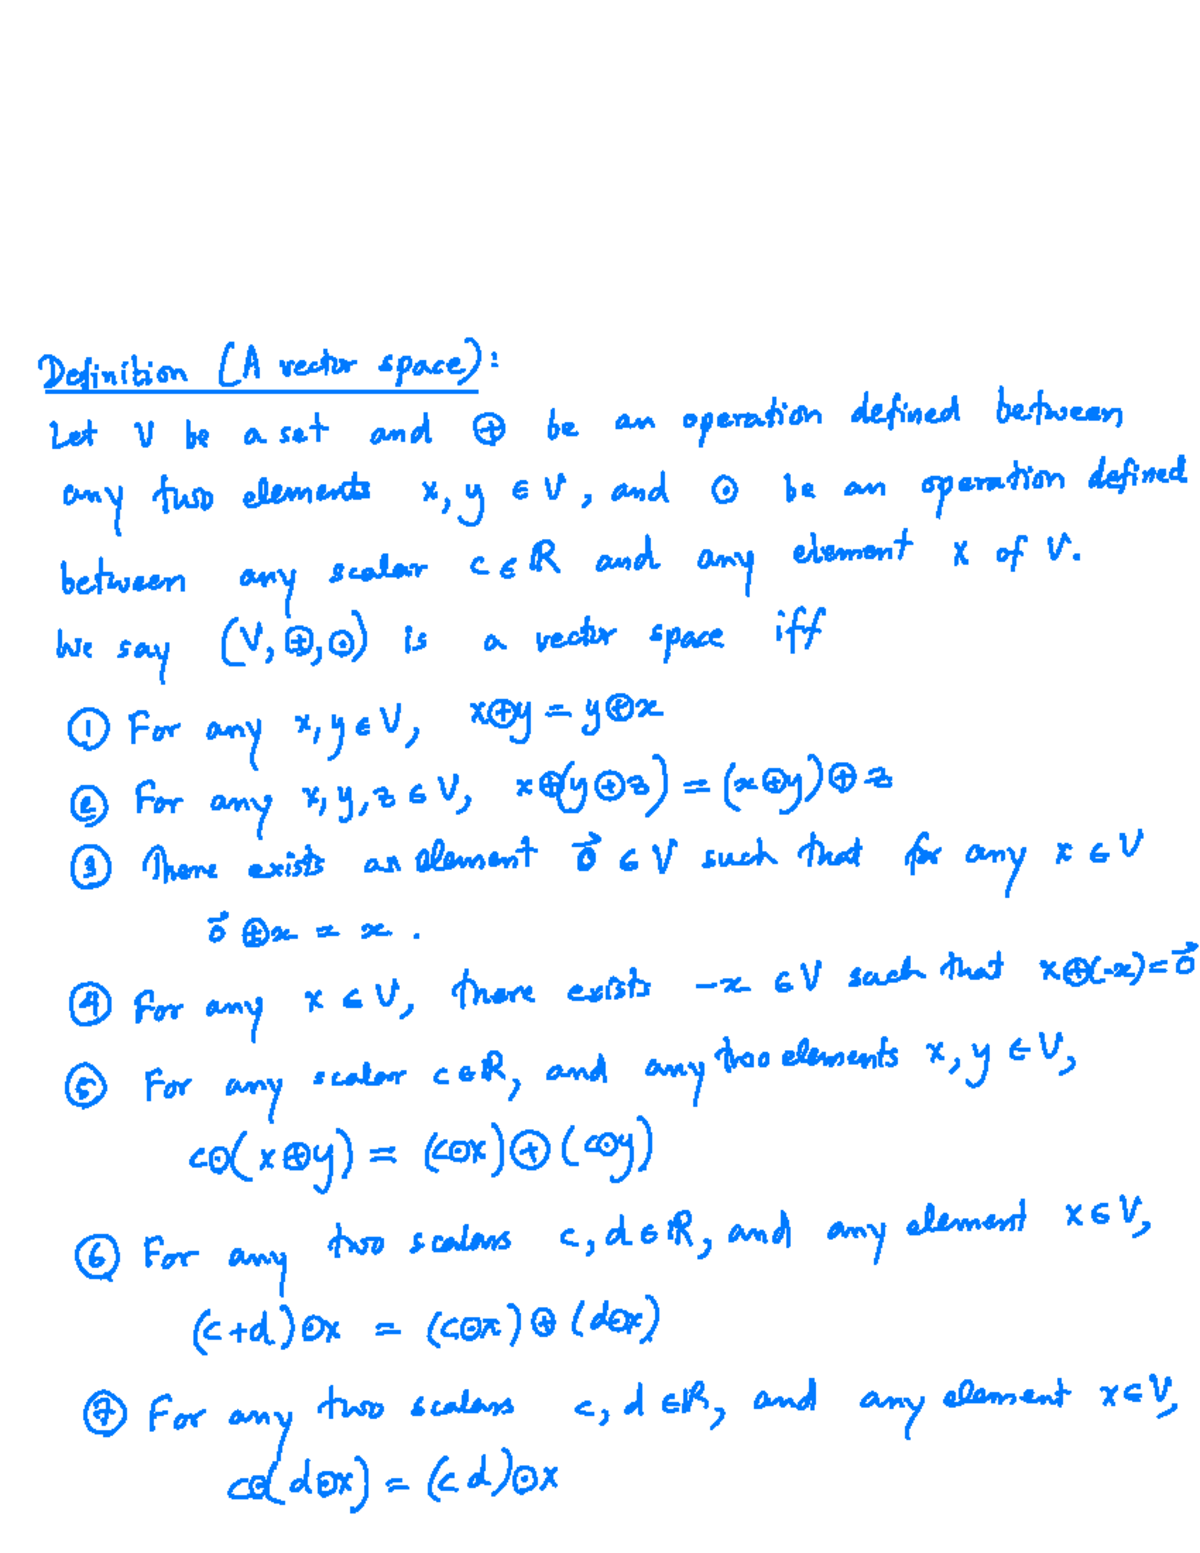 Definition (A vector space):
Let V be a set and ⊕ be an operation defined between
any two elements x, y ∈ V, and ⊙ be an operation defined
between any scalar c ∈ ℝ and any element x of V.
We say (V, ⊕, ⊙) is a vector space iff
① For any x, y ∈ V, x⊕y = y⊕x
② For any x, y, z ∈ V, x⊕(y⊕z) = (x⊕y)⊕z
③ There exists an element 0⃗ ∈ V such that for any x ∈ V
0⃗ ⊕ x = x.
④ For any x ∈ V, there exists -x ∈ V such that x⊕(-x) = 0⃗
⑤ For any scalar c ∈ ℝ, and any two elements x, y ∈ V,
c⊙(x⊕y) = (c⊙x)⊕(c⊙y)
⑥ For any two scalars c, d ∈ ℝ, and any element x ∈ V,
(c+d)⊙x = (c⊙x)⊕(d⊙x)
⑦ For any two scalars c, d ∈ ℝ, and any element x ∈ V,
c⊙(d⊙x) = (cd)⊙x